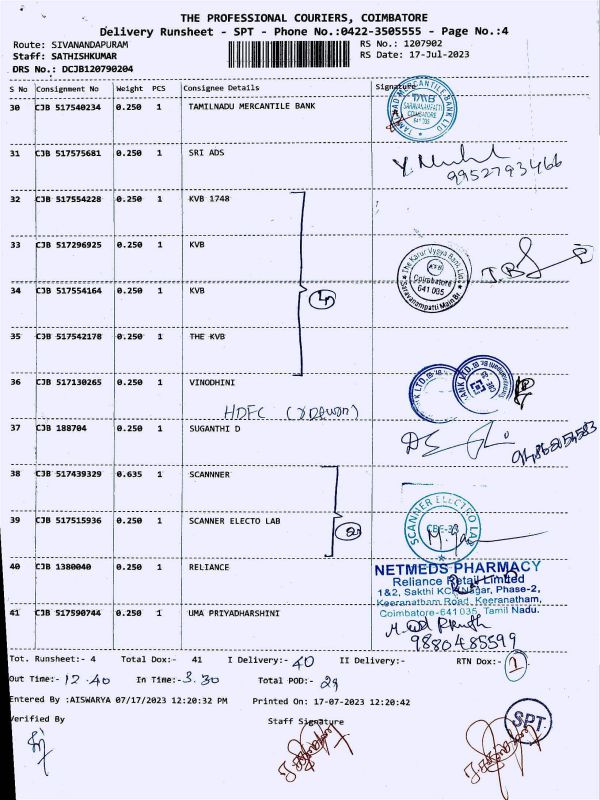 THE PROFESSIONAL COURIERS, COIMBATORE
Delivery Runsheet - SPT - Phone No.:0422-3505555 - Page No.:4
Route: SIVANANDAPURAM RS No.: 1207902
Staff: SATHISHKUMAR RS Date: 17-Jul-2023
DRS No.: DCJB120790204
S No Consignment No Weight PCS Consignee Details Signature
30 CJB 517540234 0.250 1 TAMILNADU MERCANTILE BANK
TAMILNAD MERCANTILE BANK LTD
TMB
SARAVANAMPATTI
COIMBATORE
641 035
31 CJB 517575681 0.250 1 SRI ADS
9952793466
32 CJB 517554228 0.250 1 KVB 1748
33 CJB 517296925 0.250 1 KVB
The Karur Vysya Bank Ltd.
KVB
Coimbatore
641 035
Saravanampatti Main Br
34 CJB 517554164 0.250 1 KVB
4
35 CJB 517542178 0.250 1 THE KVB
36 CJB 517130265 0.250 1 VINODHINI
HDFC
37 CJB 188704 0.250 1 SUGANTHI D
38 CJB 517439329 0.635 1 SCANNNER
39 CJB 517515936 0.250 1 SCANNER ELECTO LAB
SCANNER ELECTRO LAB
CBE-35
2
40 CJB 1380040 0.250 1 RELIANCE
NETMEDS PHARMACY
Reliance Retail Limited
1&2, Sakthi KCK Nagar, Phase-2,
Keeranatham Road, Keeranatham,
Coimbatore-641 035, Tamil Nadu.
41 CJB 517590744 0.250 1 UMA PRIYADHARSHINI
9880485599
Tot. Runsheet:- 4 Total Dox:- 41 I Delivery:- 40 II Delivery:- RTN Dox:- 1
Out Time:- 12.40 In Time:- 3.30 Total POD:- 29
Entered By :AISWARYA 07/17/2023 12:20:32 PM Printed On: 17-07-2023 12:20:42
Verified By Staff Signature
SPT